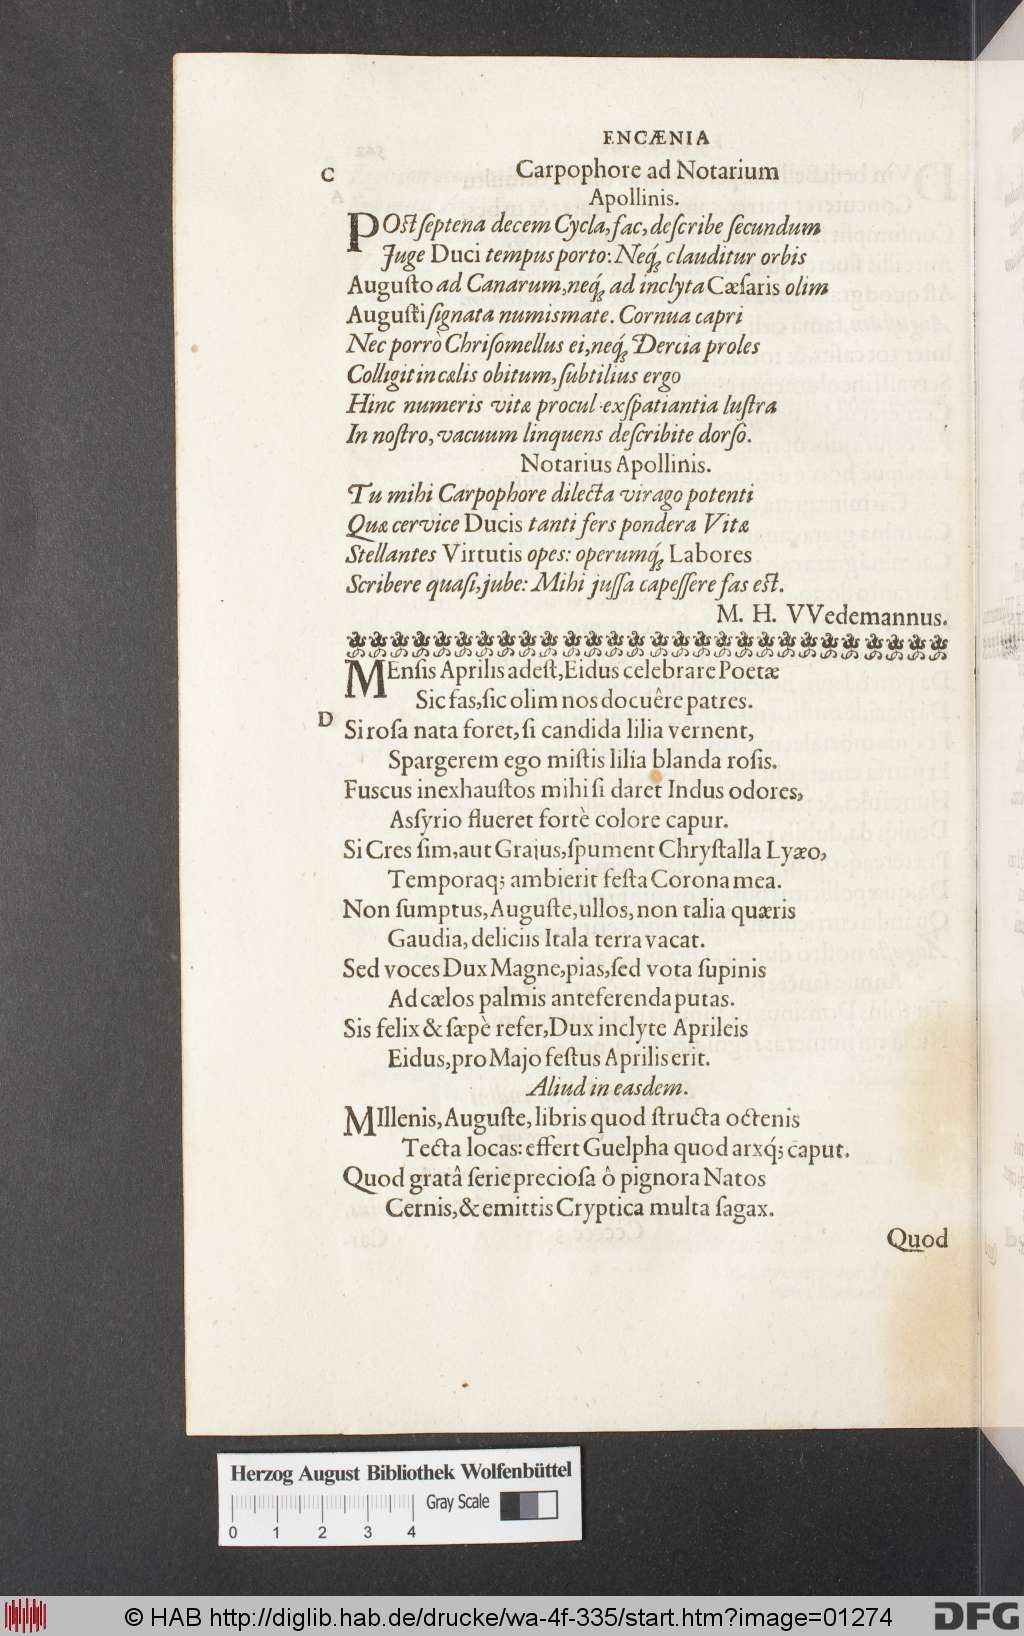 ENCÆNIA
C
Carpophore ad Notarium
Apollinis.
POst ſeptena decem Cycla, fac, deſcribe ſecundum
Juge Duci tempus porto: Neq́; clauditur orbis
Auguſto ad Canarum, neq́; ad inclyta Cæſaris olim
Auguſti ſignata numismate. Cornua capri
Nec porrò Chriſomellus ei, neq́; Dercia proles
Colligit in cælis obitum, ſubtilius ergo
Hinc numeris vitæ procul exſpatiantia luſtra
In noſtro, vacuum linquens deſcribite dorſo.
Notarius Apollinis.
Tu mihi Carpophore dilecta virago potenti
Quæ cervice Ducis tanti fers pondera Vitæ
Stellantes Virtutis opes: operumq́; Labores
Scribere quaſi, jube: Mihi juſſa capeſſere fas eſt.
M. H. VVedemannus.
MEnſis Aprilis adeſt, Eidus celebrare Poetæ
Sic fas, ſic olim nos docuêre patres.
D
Si roſa nata foret, ſi candida lilia vernent,
Spargerem ego miſtis lilia blanda roſis.
Fuscus inexhauſtos mihi ſi daret Indus odores,
Aſſyrio flueret fortè colore caput.
Si Cres ſim, aut Graius, ſpument Chryſtalla Lyæo,
Temporaq; ambierit feſta Corona mea.
Non ſumptus, Auguſte, ullos, non talia quæris
Gaudia, deliciis Itala terra vacat.
Sed voces Dux Magne, pias, ſed vota ſupinis
Ad cælos palmis anteferenda putas.
Sis felix & ſæpè refer, Dux inclyte Aprileis
Eidus, pro Majo feſtus Aprilis erit.
Aliud in easdem.
MIllenis, Auguſte, libris quod ſtructa octenis
Tecta locas: effert Guelpha quod arxq́; caput.
Quod gratâ ſerie precioſa ô pignora Natos
Cernis, & emittis Cryptica multa ſagax.
Quod
Herzog August Bibliothek Wolfenbüttel
Gray Scale
0 1 2 3 4
© HAB http://diglib.hab.de/drucke/wa-4f-335/start.htm?image=01274
DFG